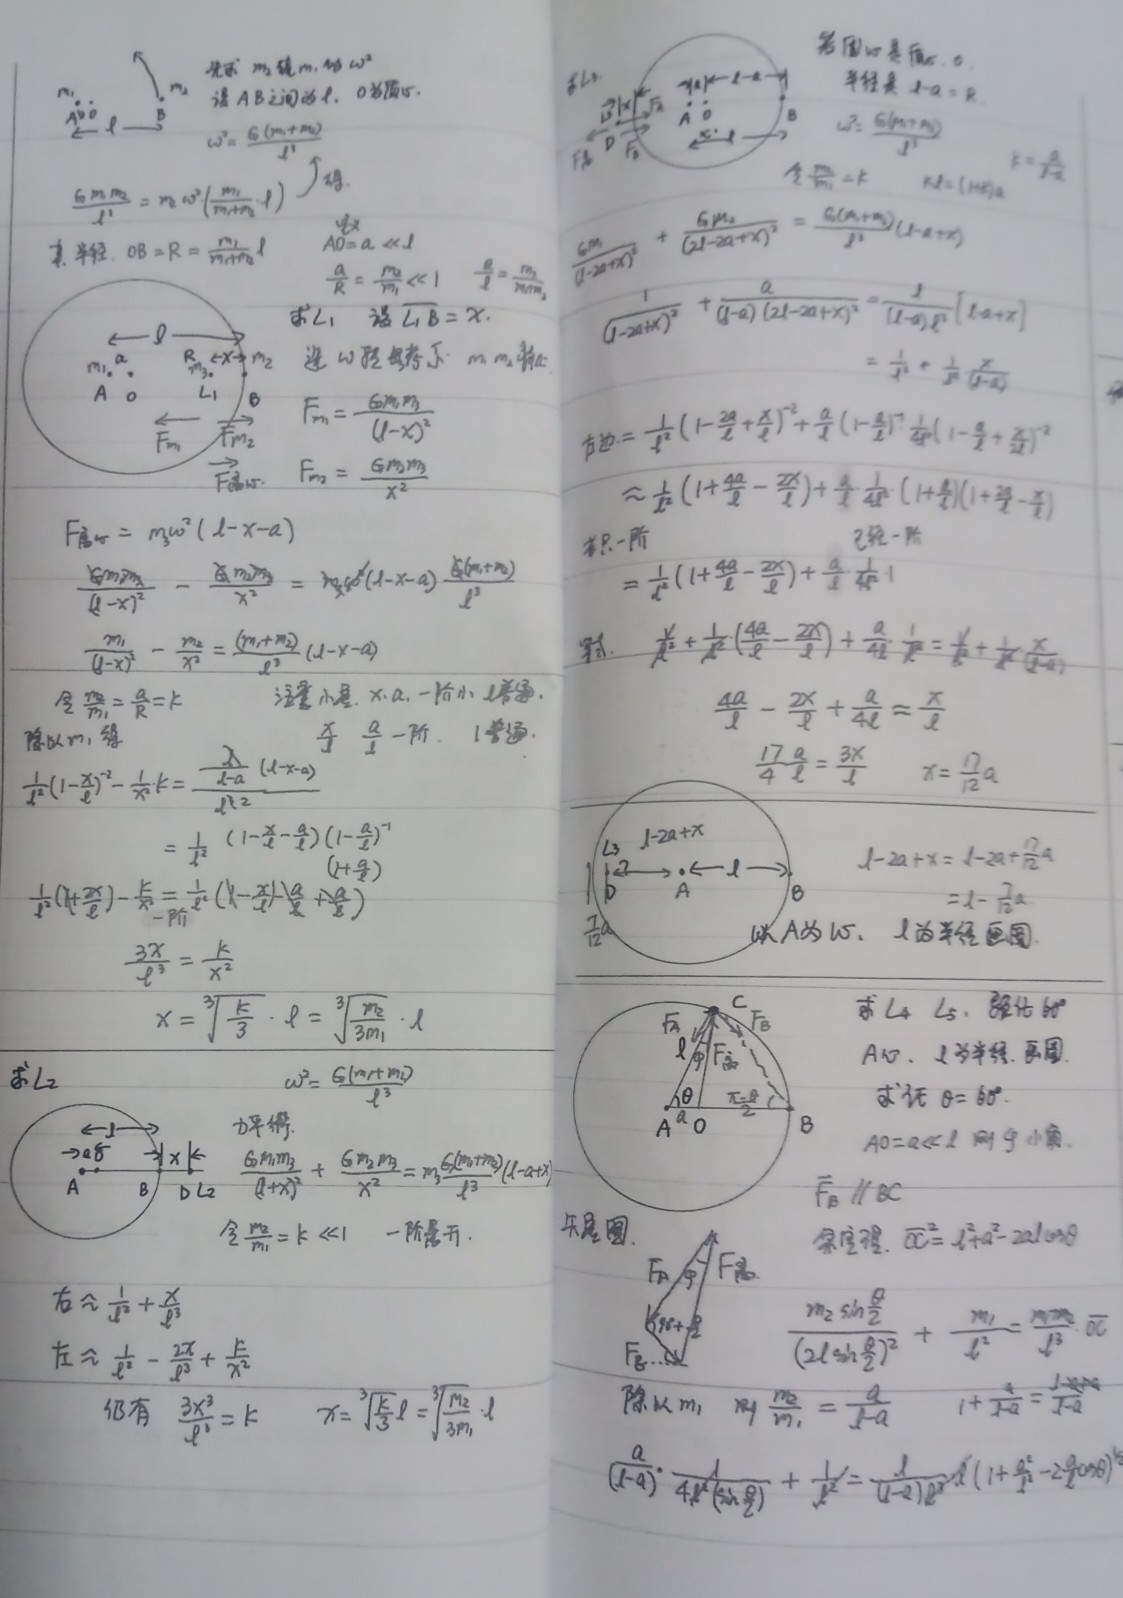 先求 m₂绕m₁的ω²
设AB之间为l. O为质心.
m₁ m₂
A a O B
l
ω² = G(m₁+m₂)/l³
Gm₁m₂/l² = m₂ω²(m₁/(m₁+m₂)·l) 得.
半径. OB=R=m₁/(m₁+m₂) l
AO=a≪l
a/R = m₂/m₁ ≪1 a/l = m₂/(m₁+m₂)
求L₁ 设 L₁B = x.
l
m₁ a R x m₂
m₃
A O L₁ B
选 ω 转动参考系. m₁ m₂
Fm₁ Fm₂
F离心.
Fm₁ = Gm₁m₃/(l-x)²
Fm₂ = Gm₂m₃/x²
F离心 = m₃ω²(l-x-a)
Gm₁m₃/(l-x)² - Gm₂m₃/x² = m₃ω²(l-x-a) G(m₁+m₂)/l³
m₁/(l-x)² - m₂/x² = (m₁+m₂)/l³ (l-x-a)
令 m₂/m₁ = a/R = k 注意小量. x. a. 一阶小 l普通.
除以m₁得 x/l a/l 一阶. 1普通.
1/l² (1-x/l)⁻² - 1/x²·k = l/(l-a) (l-x-a) / l³
= 1/l² (1-x/l-a/l)(1-a/l)⁻¹
(1+a/l)
1/l²(1+2x/l) - k/x² = 1/l²(1-x/l-a/l+a/l)
一阶
3x/l³ = k/x²
x = ∛(k/3)·l = ∛(m₂/3m₁)·l
求L₂ ω² = G(m₁+m₂)/l³
力平衡.
l
a x
A B D L₂
Gm₁m₃/(l+x)² + Gm₂m₃/x² = m₃ G(m₁+m₂)/l³ (l-a+x)
令 m₂/m₁ = k ≪1 一阶展开.
右≈ 1/l² + x/l³
左≈ 1/l² - 2x/l³ + k/x²
仍有 3x³/l³ = k x = ∛(k/3) l = ∛(m₂/3m₁)·l
求L₃
x a l-a
D A O B
F离 FA FB
l
若圆心是质心. O.
半径是 l-a=R.
ω² = G(m₁+m₂)/l³
令 m₂/m₁ = k kl=(1+k)a k = a/(l-a)
Gm₁/(l-2a+x)² + Gm₂/(2l-2a+x)² = G(m₁+m₂)/l³ (l-a+x)
1/(l-2a+x)² + a/((l-a)(2l-2a+x)²) = l/((l-a)l³) [l-a+x]
= 1/l² + 1/l² x/(l-a)
左边 = 1/l² (1-2a/l+x/l)⁻² + a/l (1-a/l)⁻¹ 1/4l² (1-a/l+x/2l)⁻²
≈ 1/l² (1+4a/l-2x/l) + a/l 1/4l² · (1+a/l)(1+2a/l-x/l)
若只一阶 已经一阶
= 1/l² (1+4a/l-2x/l) + a/l 1/4l² · 1
等式. 1/l² + 1/l² (4a/l-2x/l) + a/4l · 1/l² = 1/l² + 1/l² x/(l-a)
4a/l - 2x/l + a/4l ≈ x/l
17/4 a/l = 3x/l x = 17/12 a
l-2a+x
L₃ l
D A B
7/12 a
l-2a+x = l-2a+17/12 a
= l-7/12 a
以A为心、l为半径画圆.
求L₄ L₅.
A心. l为半径.画圆.
求证 θ=60°.
AO=a≪l 则φ小角.
C
FA FB
l φ F离
θ a (π-θ)/2
A O B
FB // BC
矢量图.
FA φ F离.
90+θ/2
FB
余弦定理. OC² = l²+a²-2al cosθ
m₂ sin θ/2 / (2l sin θ/2)² + m₁/l² = (m₁+m₂)/l³ · OC
除以m₁ 则 m₂/m₁ = a/(l-a) 1+a/(l-a) =
a/(l-a) · 1/(4l²(sin θ/2)) + 1/l² = l/((l-a)l³) l (1+a²/l²-2 a/l cosθ)^½